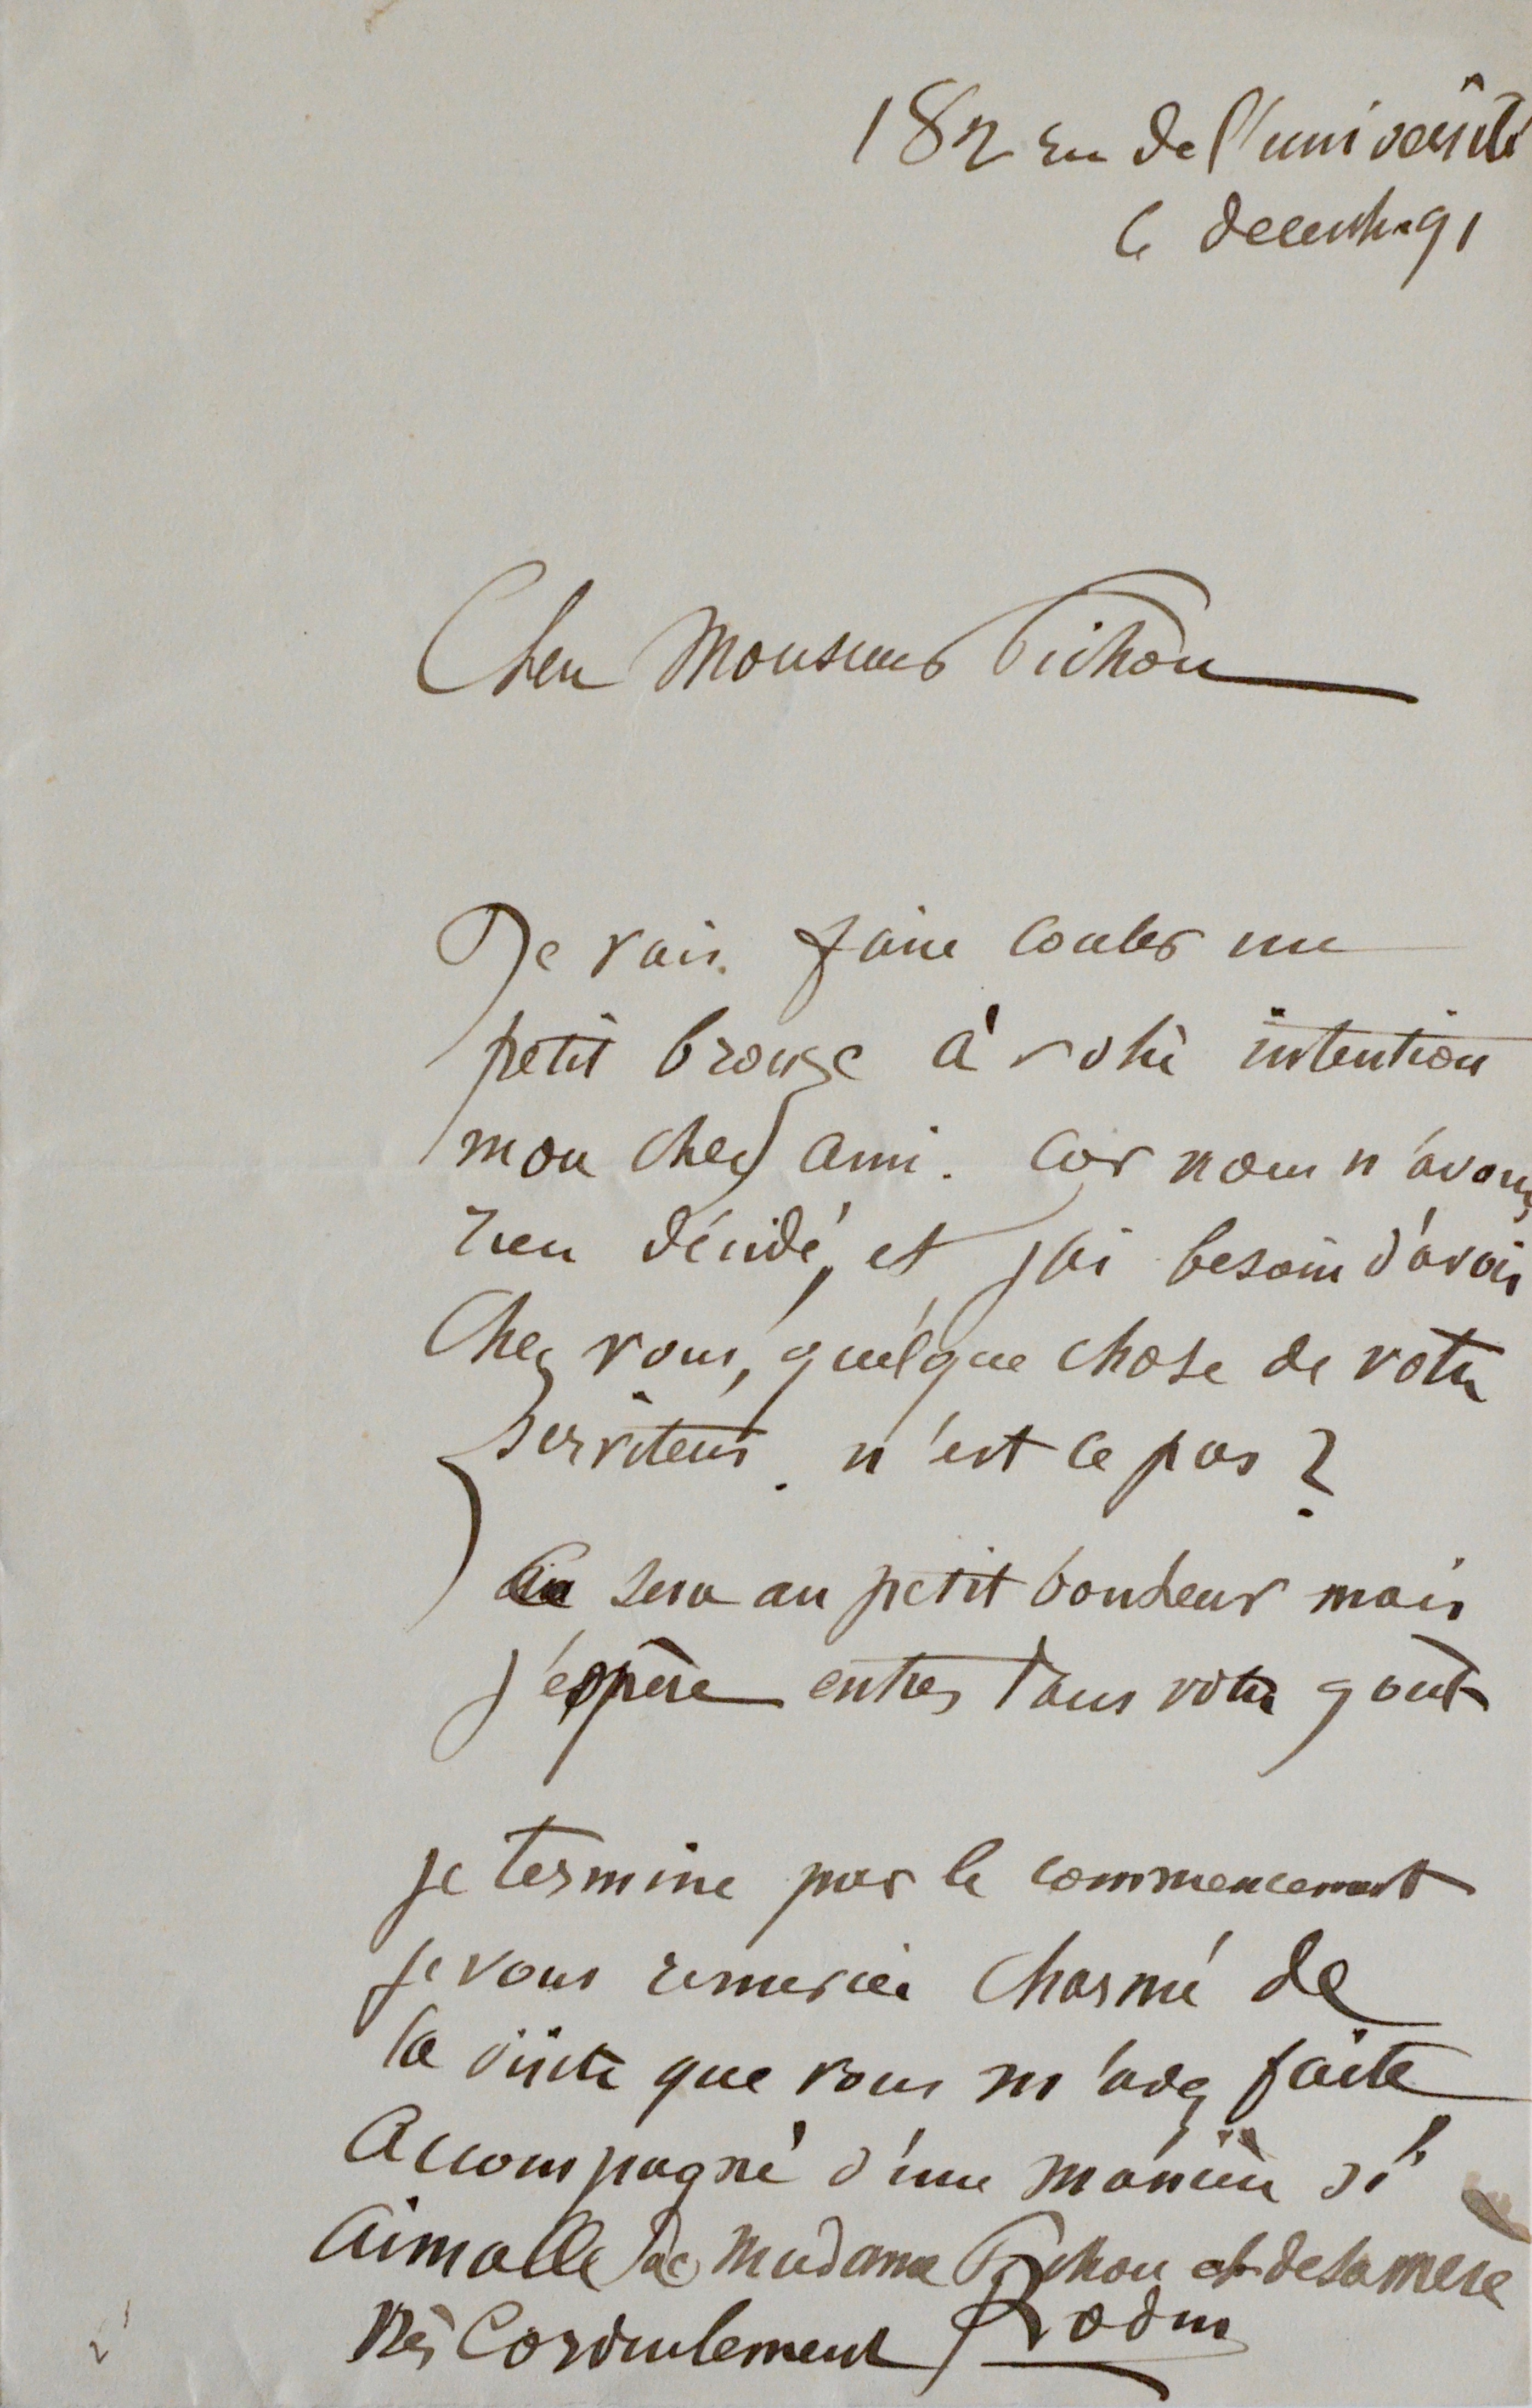 182 rue de l'université
6 decembre 91
Cher Monsieur Pichon
Je vais faire couler un
petit bronze à votre intention
mon cher ami. Car nous n'avons
rien décidé, et j'ai besoin d'avoir
Chez vous, quelque chose de votre
serviteur. n'est ce pas ?
sera au petit bonheur mais
j'espère entrer dans votre goût
je termine par le commencement
je vous remercie charmé de
la visite que vous m'avez faite
accompagné d'une manière si
aimable de Madame Pichon et de sa mère
très Cordialement Rodin